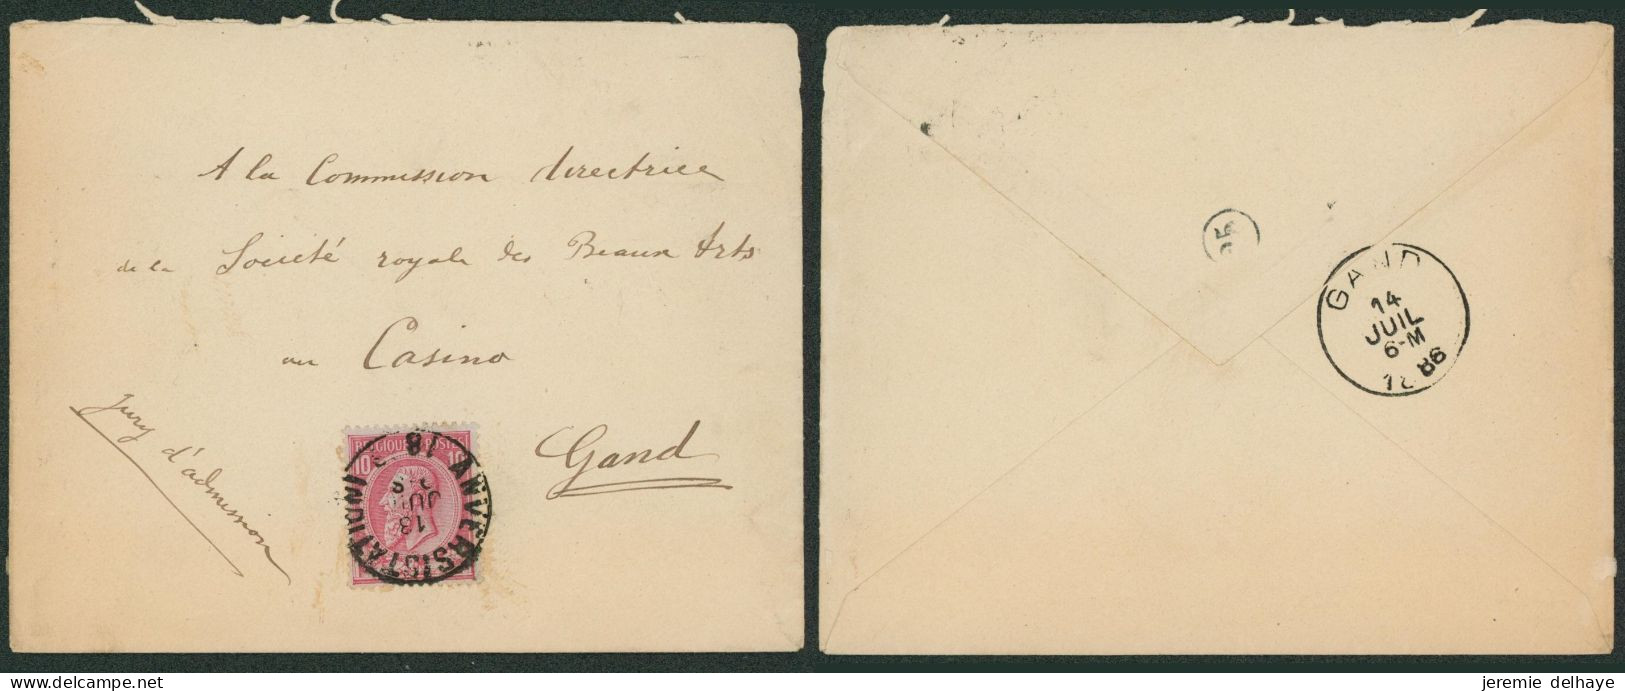 A la Commission directrice
de la Société royale des Beaux Arts
au Casino
Gand
Jury d'admission
BELGIQUE POSTES
10 10
ANVERS (STATION)
13
JUIL
GAND
14
JUIL
6-M
1886
jeremie delhaye
www.delcampe.net